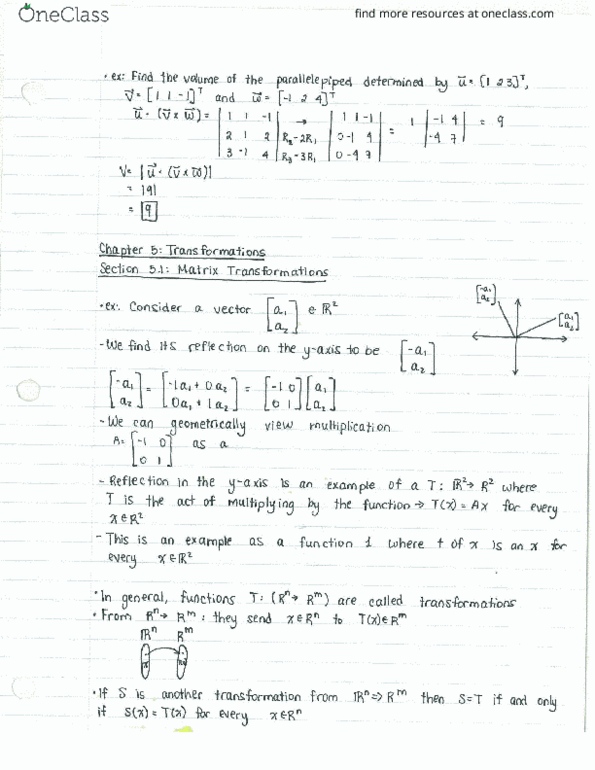 OneClass
find more resources at oneclass.com
• ex: Find the volume of the parallelepiped determined by u⃗ = [1 2 3]ᵀ,
v⃗ = [1 1 -1]ᵀ and w⃗ = [-1 2 4]ᵀ
u⃗ · (v⃗ x w⃗) = | 1 1 -1 | → | 1 1 -1 | = 1 | -1 4 | = 9
| 2 1 2 | R₂-2R₁ | 0 -1 4 | | -4 7 |
| 3 -1 4 | R₃-3R₁ | 0 -4 7 |
V= |u⃗ · (v⃗ x w⃗)|
= |9|
= 9
Chapter 5: Transformations
Section 5.1: Matrix Transformations
• ex: Consider a vector [a₁ a₂] ∈ ℝ²
[-a₁ a₂] [a₁ a₂]
- We find its reflection on the y-axis to be [-a₁ a₂]
[-a₁ a₂] = [-1a₁ + 0a₂ 0a₁ + 1a₂] = [-1 0 0 1] [a₁ a₂]
- We can geometrically view multiplication
A= [-1 0 0 1] as a
- Reflection in the y-axis is an example of a T: ℝ² → ℝ² where
T is the act of multiplying by the function → T(x) = Ax for every
x ∈ ℝ²
- This is an example as a function 1 where t of x is an x for
every x ∈ ℝ²
• In general, functions T: (ℝⁿ → ℝᵐ) are called transformations
• From ℝⁿ → ℝᵐ: they send x ∈ ℝⁿ to T(x) ∈ ℝᵐ
ℝⁿ ℝᵐ
• If S is another transformation from ℝⁿ ⇒ ℝᵐ then S=T if and only
if S(x) = T(x) for every x ∈ ℝⁿ